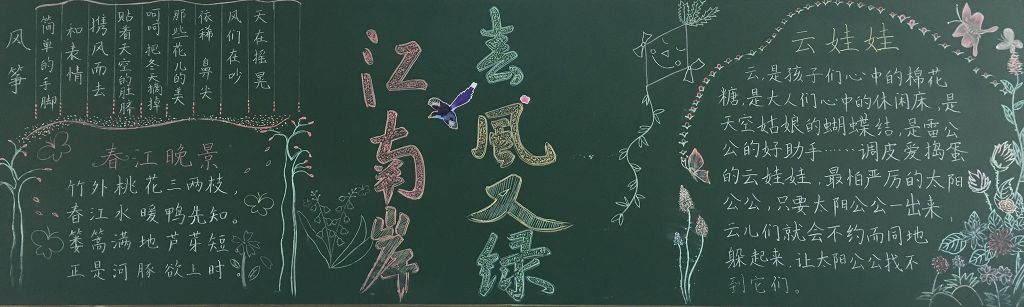 风筝
简单的手脚
和表情
携风而去
贴着天空的肚脐
呵呵 把冬天摘掉
那些花儿的美
依稀 鼻尖
风们在吵
天在摇晃
春江晚景
竹外桃花三两枝，
春江水暖鸭先知。
蒌蒿满地芦芽短，
正是河豚欲上时。
春風又绿
江南岸
云娃娃
云，是孩子们心中的棉花
糖，是大人们心中的休闲床，是
天空姑娘的蝴蝶结，是雷公
公的好助手……调皮爱捣蛋
的云娃娃，最怕严厉的太阳
公公，只要太阳公公一出来，
云儿们就会不约而同地
躲起来，让太阳公公找不
到它们。